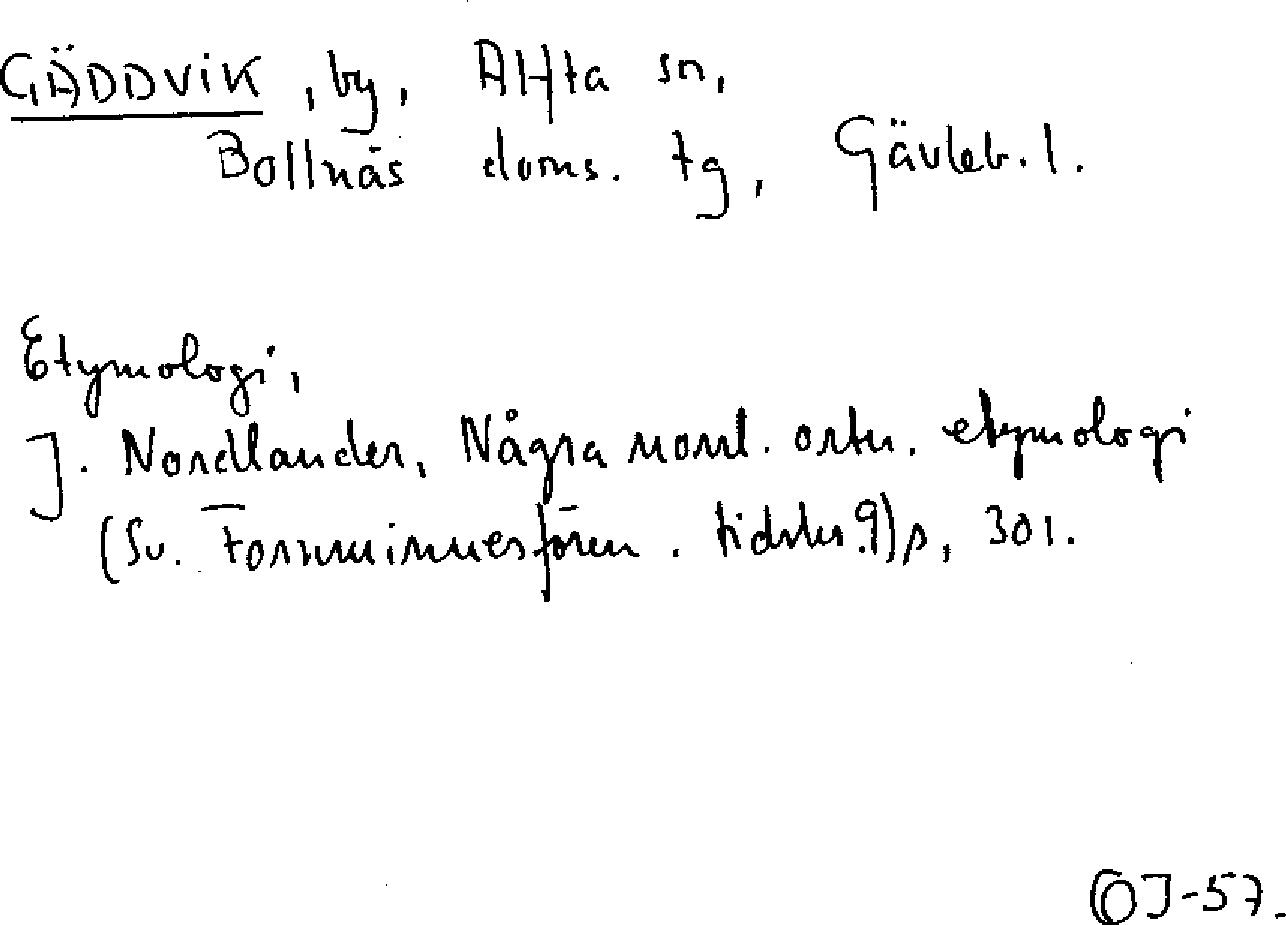 GÄDDVIK, by, Alfta sn,
Bollnäs doms. tg, Gävleb. l.
Etymologi,
J. Nordlander, Några norrl. ortn. etymologi
(Sv. Fornminnesfören. tidskr. 9) p, 301.
OJ-57.